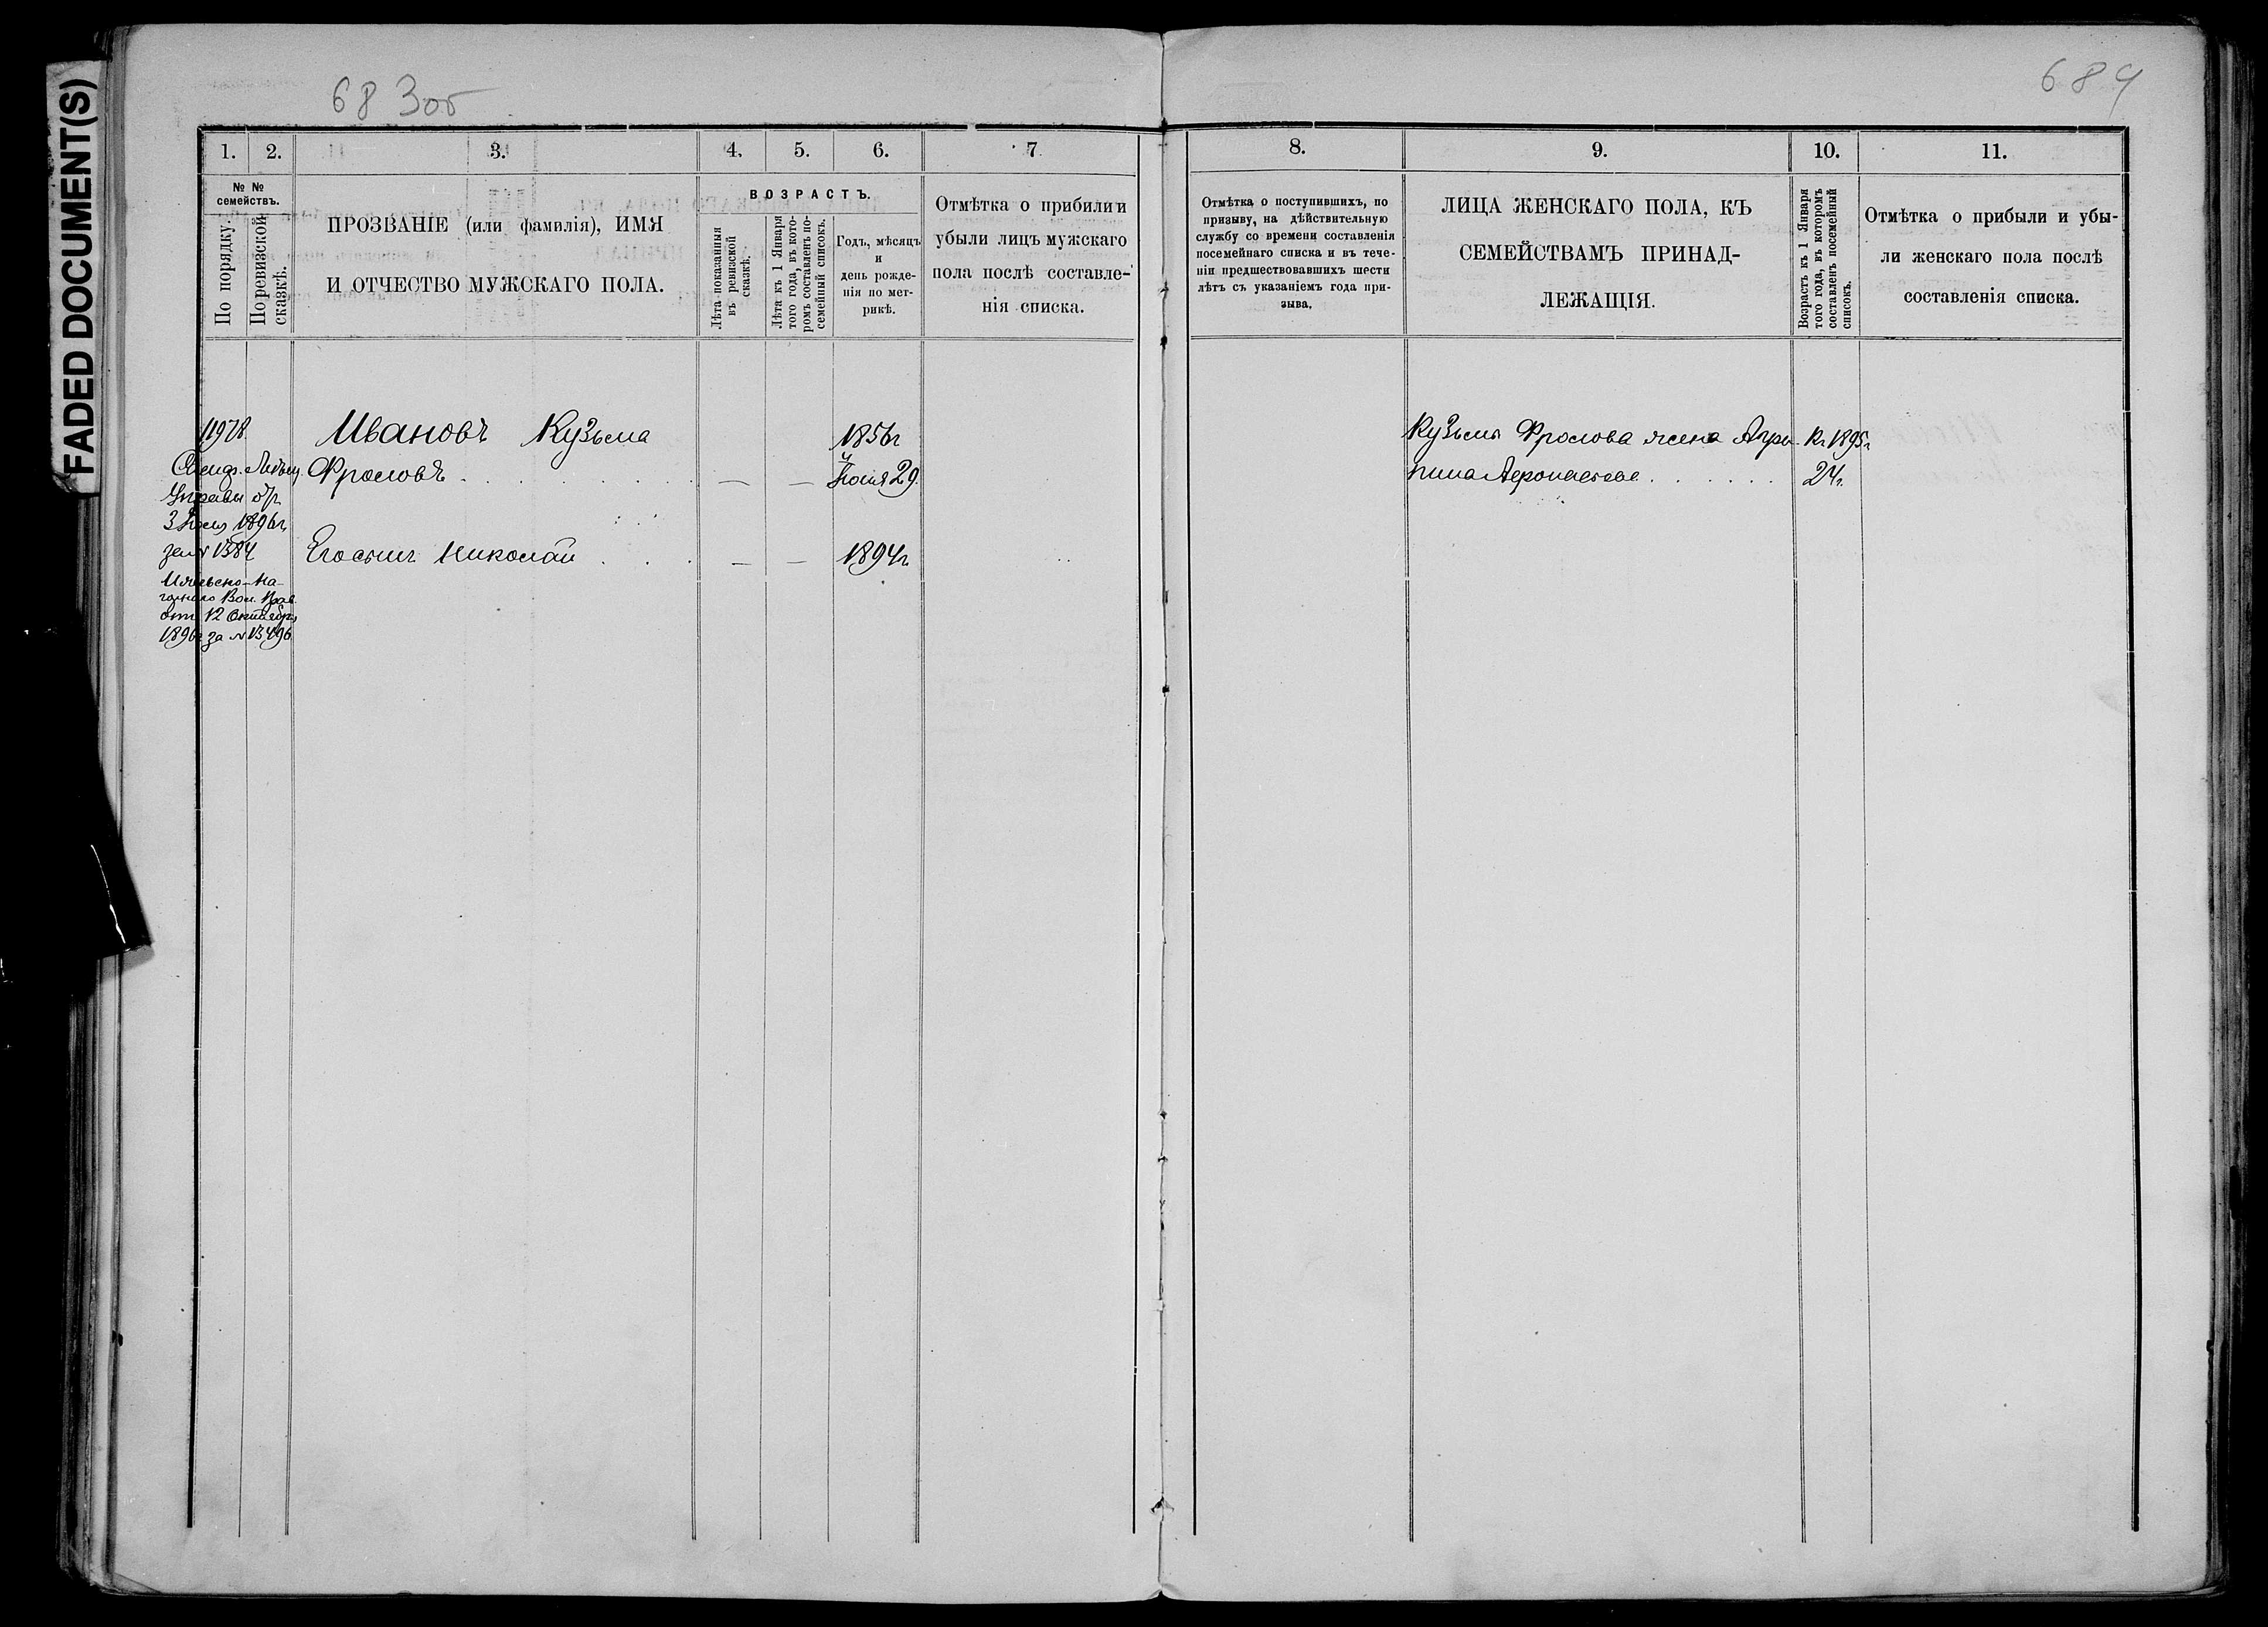 FADED DOCUMENT(S)
683об
684
1.
2.
3.
4.
5.
6.
7
№ №
семействъ.
По порядку.
По ревизской
сказкѣ.
ПРОЗВАНІЕ (или фамилія), ИМЯ
И ОТЧЕСТВО МУЖСКАГО ПОЛА.
ВОЗРАСТЪ.
Лѣта показанныя
въ ревизской
сказкѣ.
Лѣта къ 1 Января
того года, въ кото-
ромъ составленъ по-
семейный списокъ.
Годъ, мѣсяцъ
и
день рожде-
нія по мет-
рикѣ.
Отмѣтка о прибили и
убыли лицъ мужскаго
пола послѣ составле-
нія списка.
8.
9.
10.
11.
Отмѣтка о поступившихъ, по
призыву, на дѣйствительную
службу со времени составленія
посемейнаго списка и въ тече-
ніи предшествовавшихъ шести
лѣтъ съ указаніемъ года при-
зыва.
ЛИЦА ЖЕНСКАГО ПОЛА, КЪ
СЕМЕЙСТВАМЪ ПРИНАД-
ЛЕЖАЩІЯ.
Возрастъ къ 1 Января
того года, въ которомъ
составленъ посемейный
списокъ.
Отмѣтка о прибыли и убы-
ли женскаго пола послѣ
составленія списка.
1978
Ивановъ Кузьма
1856г
Фроловъ
Іюля 29
Управы от
3 Іюля 1896г
за № 1384
Его сынъ Николай
1894г
Вол. Прав.
отъ 12 Октября
1896г за № 3496
Кузьмы Фролова жена Агри-
пина
Къ 1895г
24г.